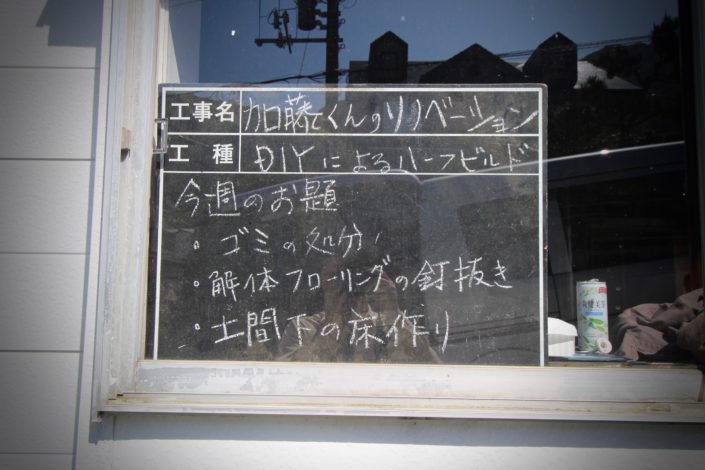 工事名 加藤くんのリノベーション
工種 DIYによるハーフビルド
今週のお題
・ゴミの処分
・解体フローリングの釘抜き
・土間下の床作り